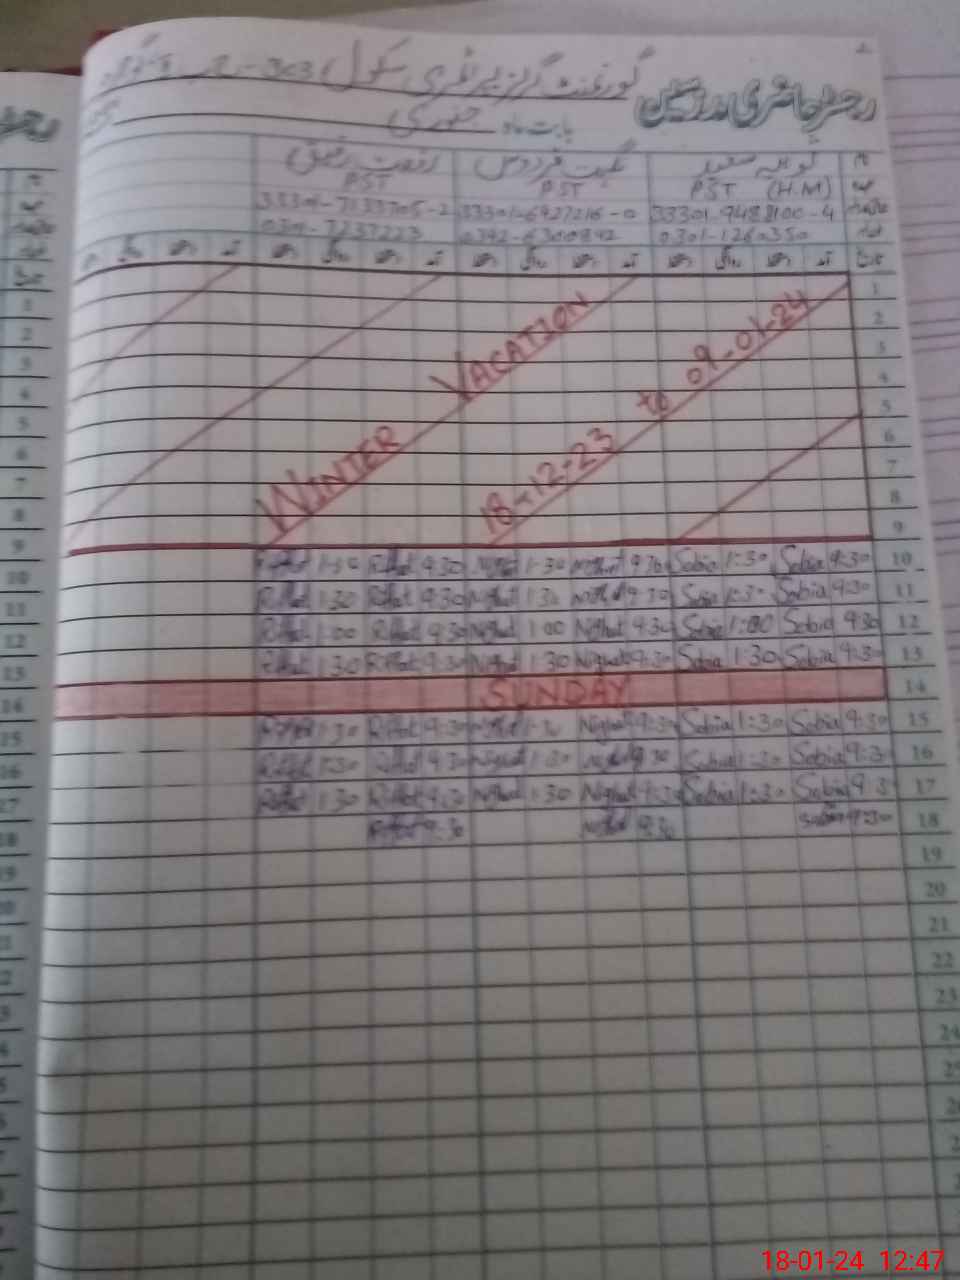 رجسٹر حاضری مدرسین گورنمنٹ گرلز پرائمری سکول 303
بابت ماہ جنوری
نام ثوبیہ سعید نگہت فردوس رفعت رفیق
PST (H.M) PST PST
33301-9488100-4 33301-6927216-0 33301-7133705-2
0301-1260350 0342-6300842 0301-7237223
تاریخ آمد دستخط روانگی دستخط آمد دستخط روانگی دستخط آمد دستخط روانگی دستخط
1
2
3
4
5
6
7
8
9
WINTER VACATION
18-12-23 to 09-01-24
Riffat 1:30 Riffat 9:30 Nighat 1:30 Nighat 9:30 Sobia 1:30 Sobia 9:30 10
Riffat 1:30 Riffat 9:30 Nighat 1:30 Nighat 9:30 Sobia 1:30 Sobia 9:30 11
Riffat 1:00 Riffat 9:30 Nighat 1:00 Nighat 9:30 Sobia 1:00 Sobia 9:30 12
Riffat 1:30 Riffat 9:30 Nighat 1:30 Nighat 9:30 Sobia 1:30 Sobia 9:30 13
SUNDAY 14
Riffat 1:30 Riffat 9:30 Nighat 1:30 Nighat 9:30 Sobia 1:30 Sobia 9:30 15
Riffat 1:30 Riffat 9:30 Nighat 1:30 Nighat 9:30 Sobia 1:30 Sobia 9:30 16
Riffat 1:30 Riffat 9:30 Nighat 1:30 Nighat 9:30 Sobia 1:30 Sobia 9:30 17
Riffat 9:30 Nighat 9:30 Sobia 9:30 18
19
20
21
22
23
24
18-01-24 12:47